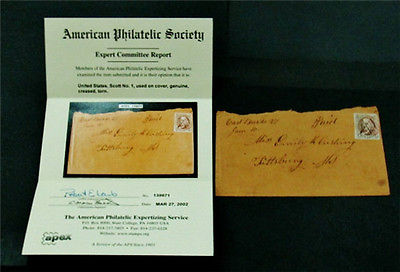 American Philatelic Society
Expert Committee Report
Members of the American Philatelic Expertizing Service have
examined the item submitted and it is their opinion that it is:
United States, Scott No. 1, used on cover, genuine,
creased, torn.
No. 139871
Date MAR 27, 2002
The American Philatelic Expertizing Service
P.O. Box 8000, State College, PA 16803 USA
Phone: 814-237-3803 / Fax: 814-237-6128
Website: www.stamps.org
apex
A Service of the APS Since 1903
Paid
Miss Emily Cushing